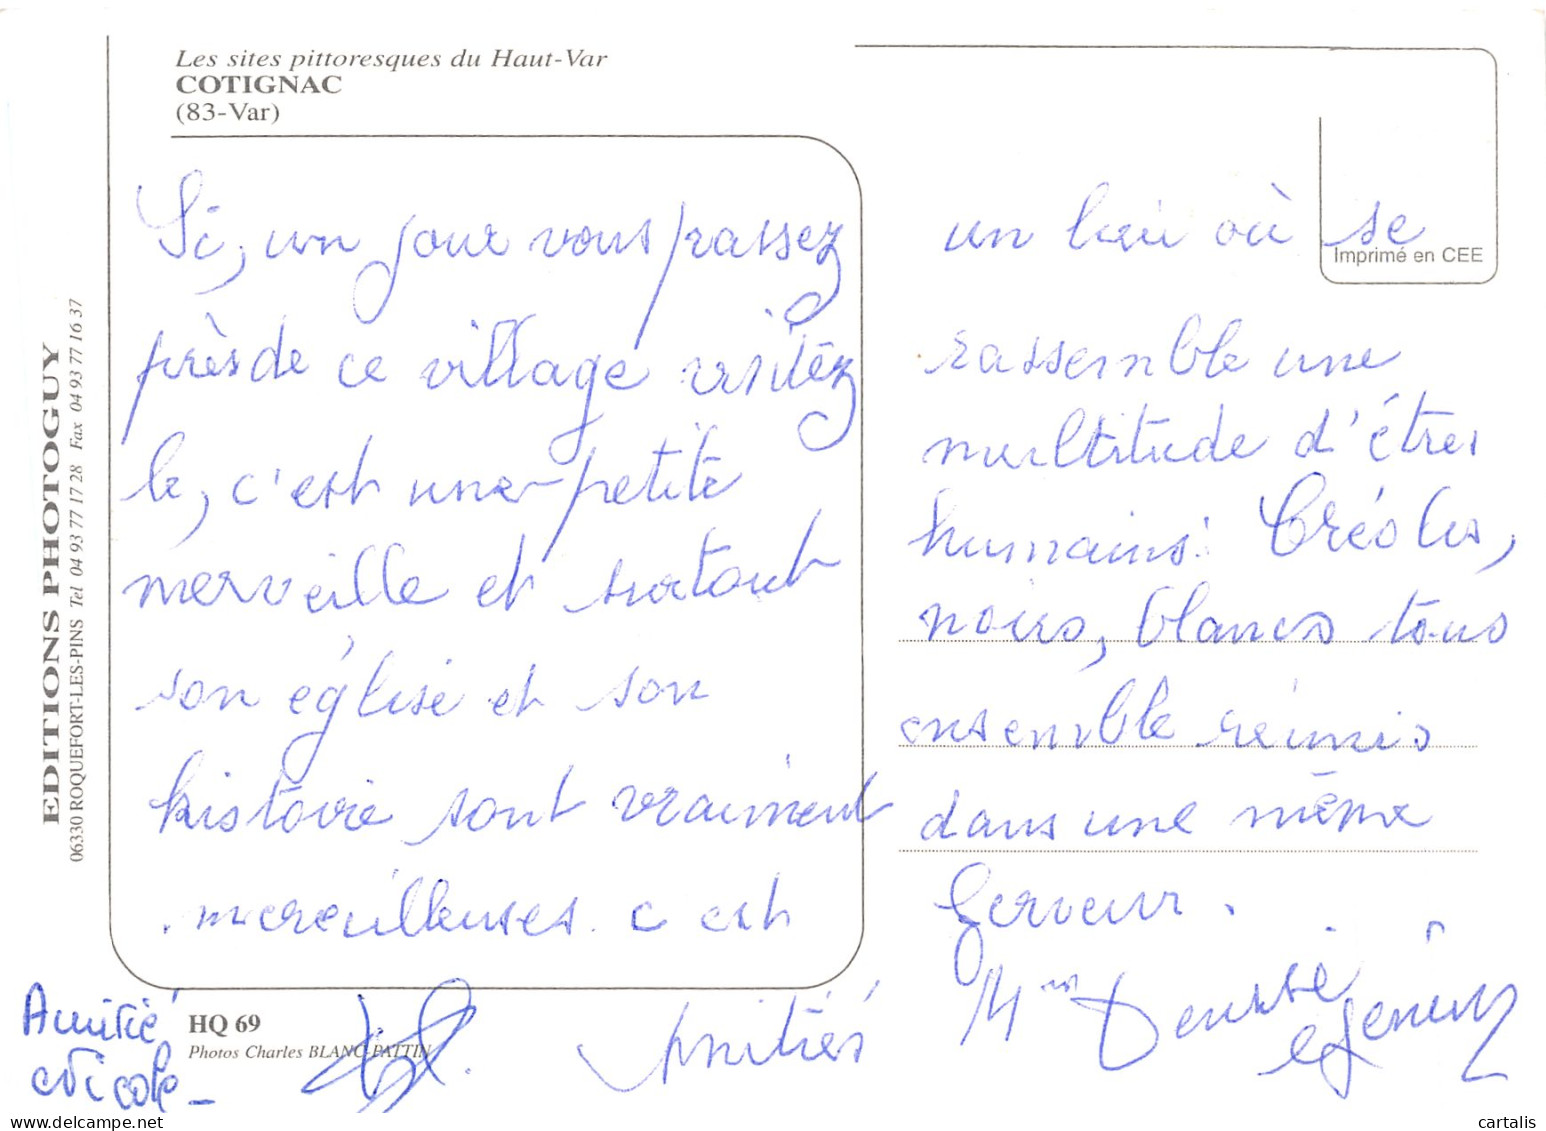 Les sites pittoresques du Haut-Var
COTIGNAC
(83-Var)
EDITIONS PHOTOGUY
06330 ROQUEFORT-LES-PINS Tel 04 93 77 17 28 Fax 04 93 77 16 37
Si, un jour vous passez
près de ce village visitez
le, c'est une petite
merveille et surtout
son église et son
histoire sont vraiment
merveilleuses. c est
Imprimé en CEE
un lieu où se
rassemble une
multitude d'êtres
humains: Créoles,
noirs, blancs tous
ensemble réunis
dans une même
ferveur.
Amitié
Nicole_
HQ 69
Photos Charles BLANC-PATTIN
Amitiés
Mme Denise
cartalis